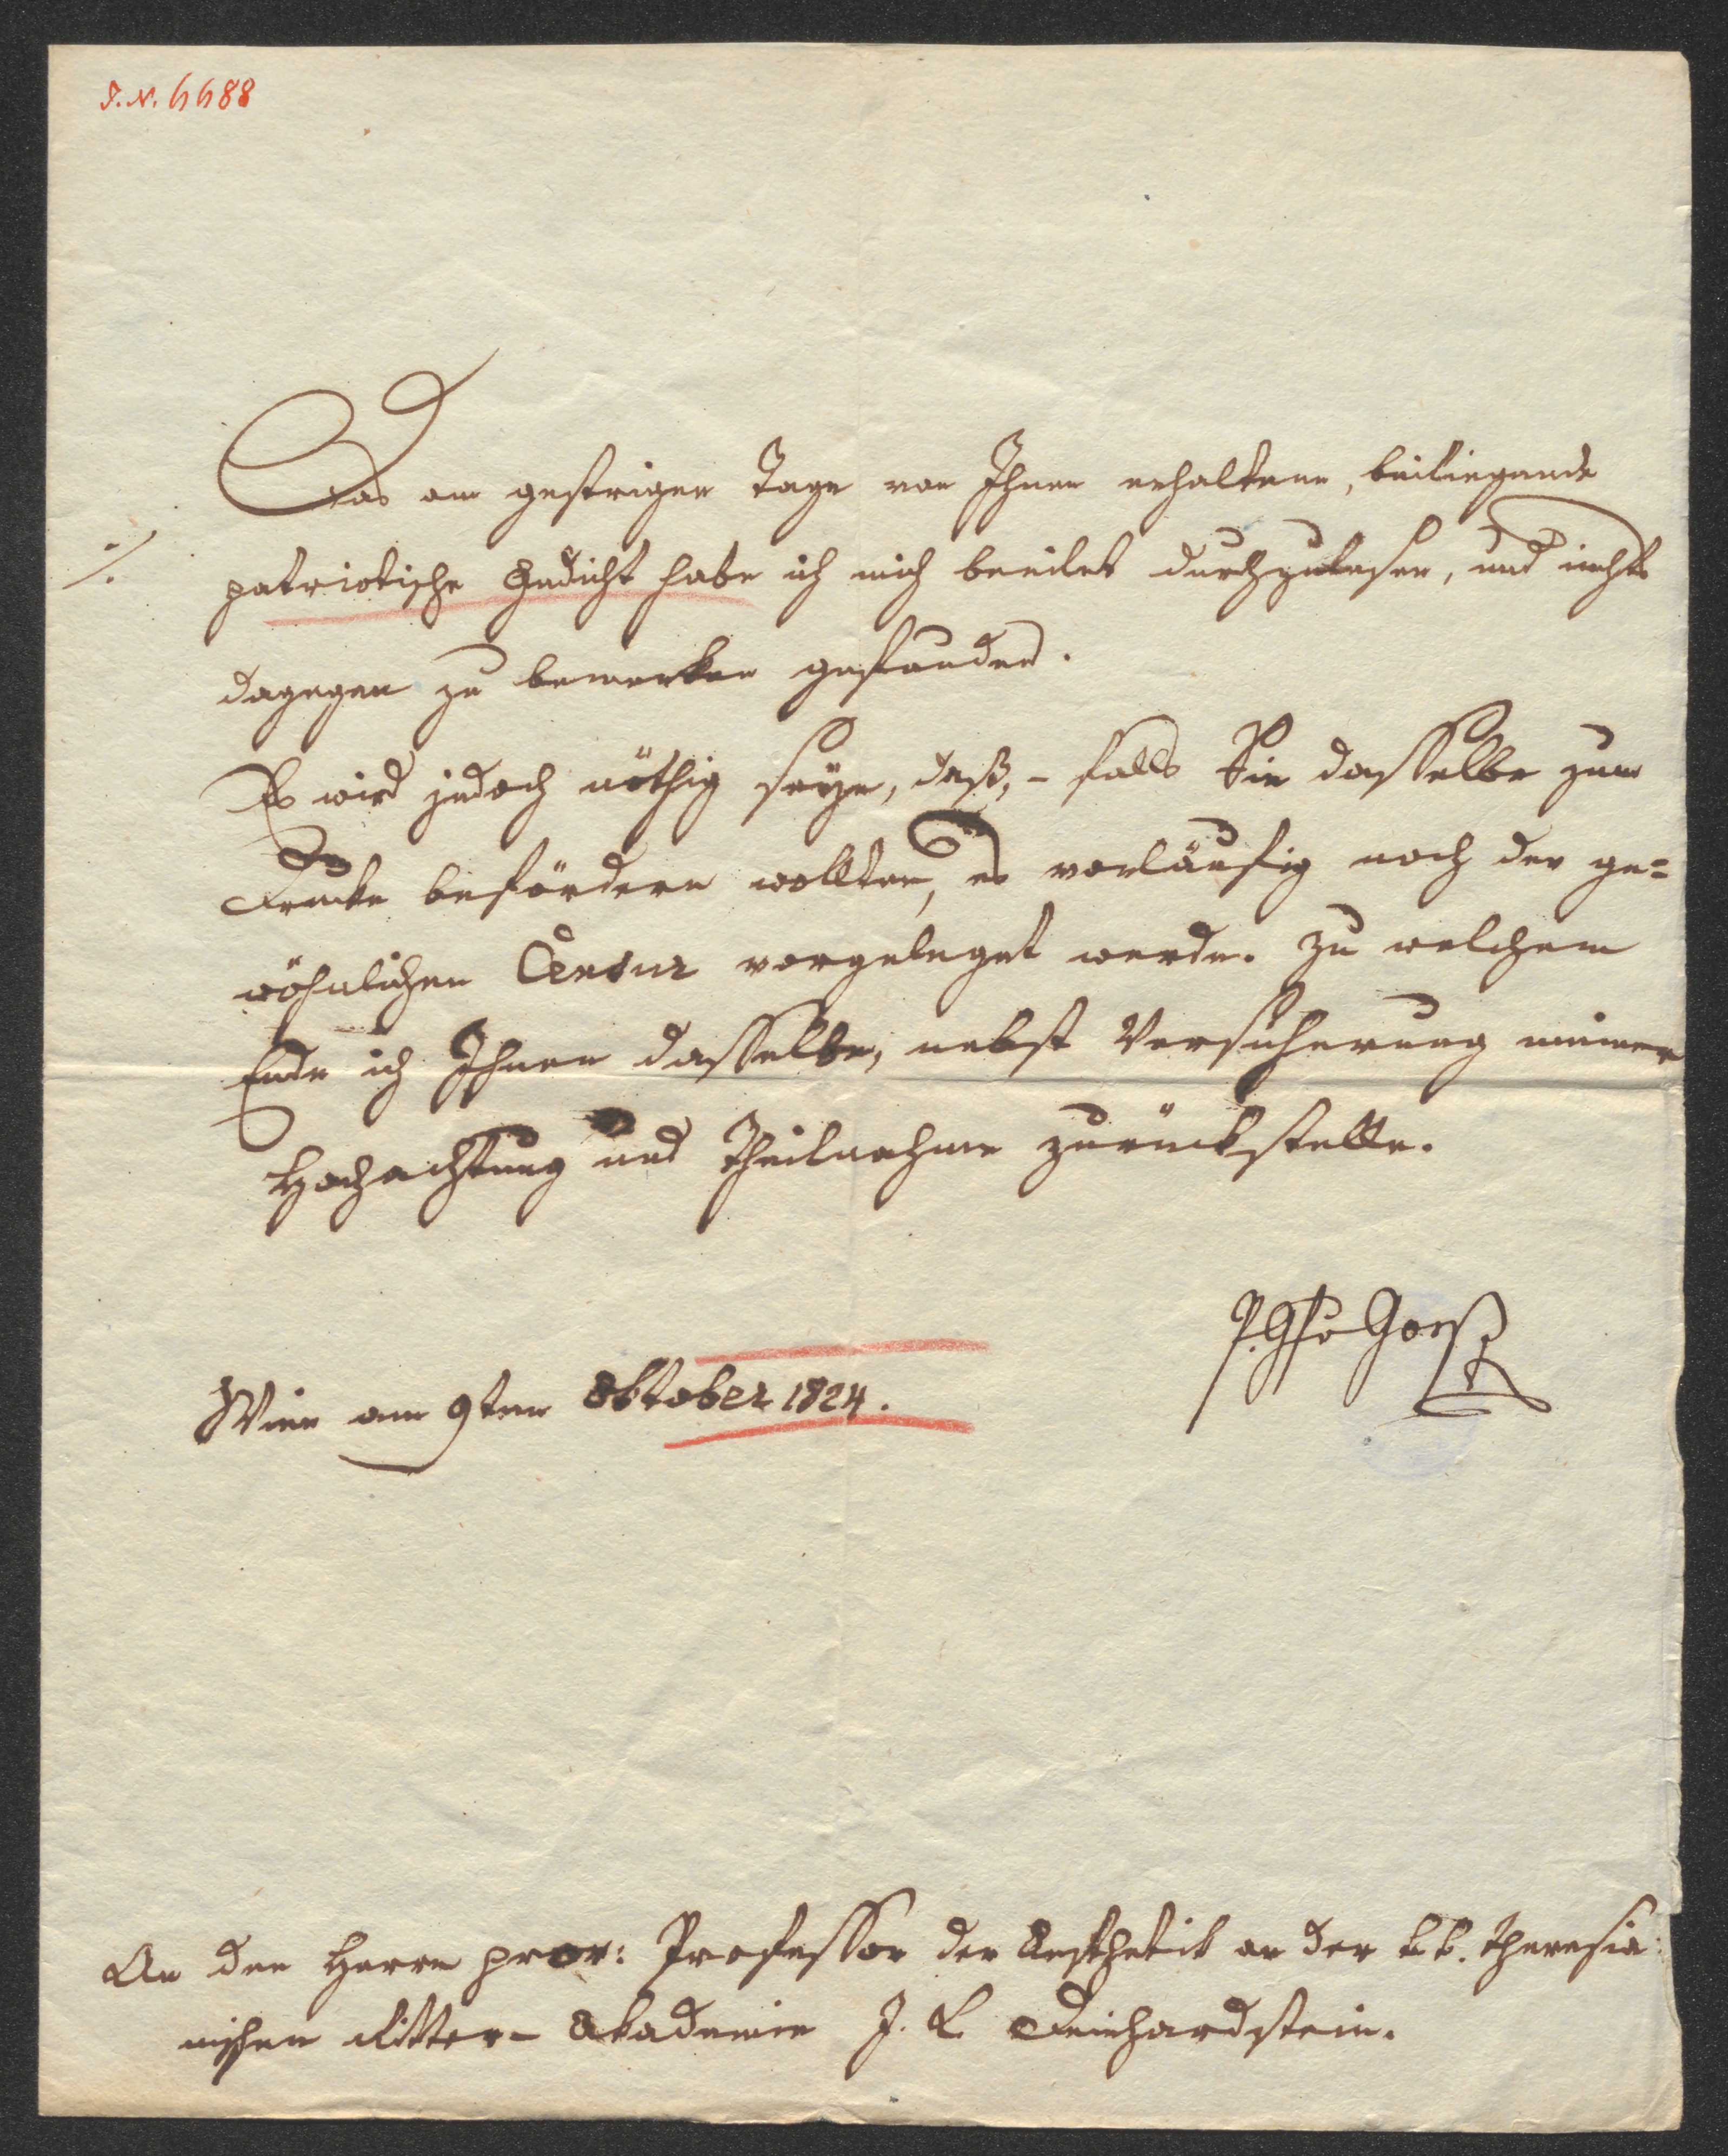 J.N. 6688
Das am gestrigen Tage von Ihnen erhaltene, beiliegende
./.
patriotische Gedicht habe ich mich beeilet durchzulesen, und nichts
dagegen zu bemerken gefunden.
Es wird jedoch nöthig seyn, daß, - falls Sie dasselbe zum
Drucke befördern wollten, es vorläufig noch der ge=
wöhnlichen Censur vorgeleget werde. Zu welchem
Ende ich Ihnen dasselbe, nebst Versicherung meiner
Hochachtung und Theilnahme zurückstelle.
Goeß
Wien am 9ten Oktober 1824.
An den Herrn prov: Professor der Aesthetik an der k.k. theresia=
nischen Ritter-Akademie J. L. Deinhardstein.